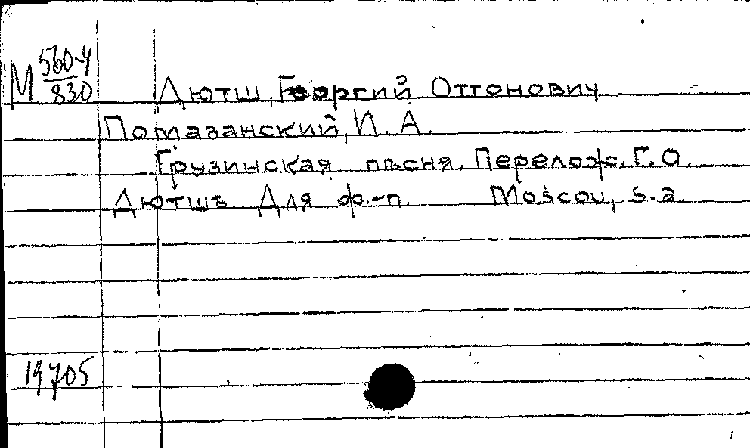 М 560-4
830
Дютш, Георгий Оттонович
Помазанский, И. А.
Грузинская пѣсня. Перелож. Г. О.
Дютшъ Для ф.-п. Moscou, s.a.
19705